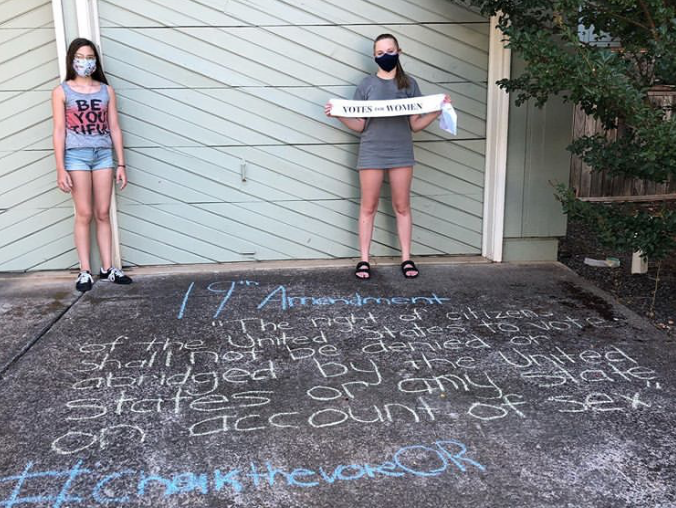 BE
YOU
TIFUL
VOTES FOR WOMEN
19th Amendment
"The right of citizens
of the United States to vote
shall not be denied or
abridged by the United
States or any State,
on account of sex"
#ChalkthevoteOR